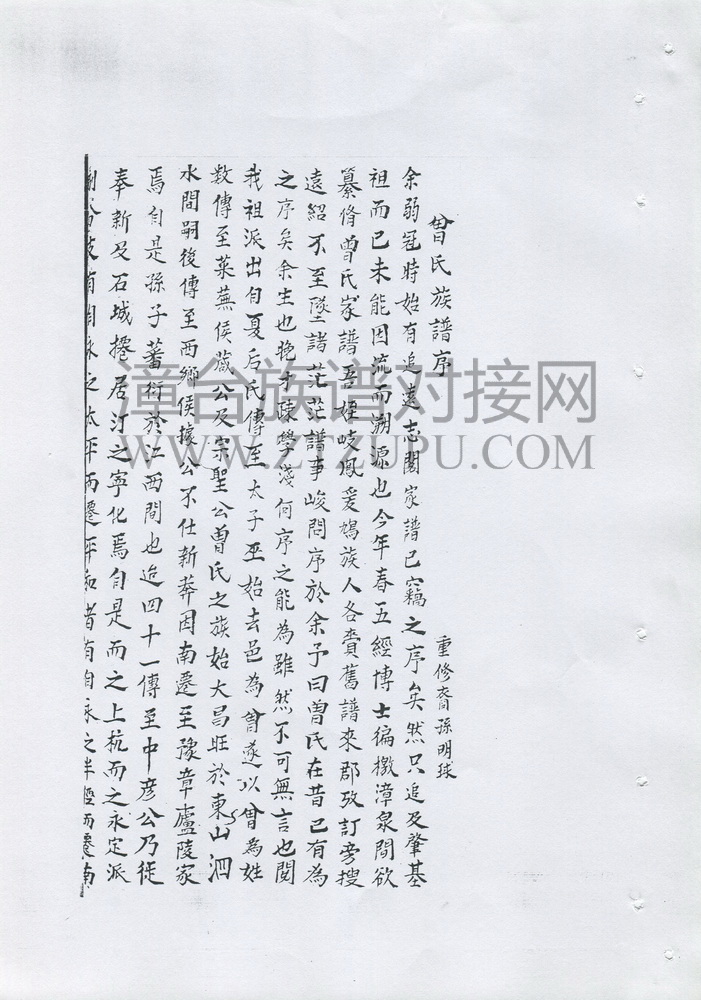 曾氏族譜序
重修裔孫明球
余弱冠時始有追遠志閱家譜已竊之序矣然只追及肇基
祖而已未能因流而溯源也今年春五經博士徧檄漳泉間欲
纂脩曾氏家譜吾姪岐鳳爰鳩族人各賫舊譜來郡攷訂旁搜
遠紹不至墜諸茫茫譜事峻問序於余予曰曾氏在昔已有為
之序矣余生也晚予疎學淺何序之能為雖然不可無言也閱
我祖派出自夏后氏傳至太子巫始去邑為曾遂以曾為姓
数傳至萊蕪侯蒧公及宗聖公曾氏之族始大昌旺於東山泗
水間嗣後傳至西鄉侯據公不仕新莽因南遷至豫章廬陵家
焉自是孫子蕃衍於江西間也迨四十一傳至中彦公乃徙
奉新及石城捲居汀之寧化焉自是而之上杭而之永定派
分支有自永之太平而遷平和者有自永之半徑而遷南
漳台族谱对接网
WWW.ZTZUPU.COM